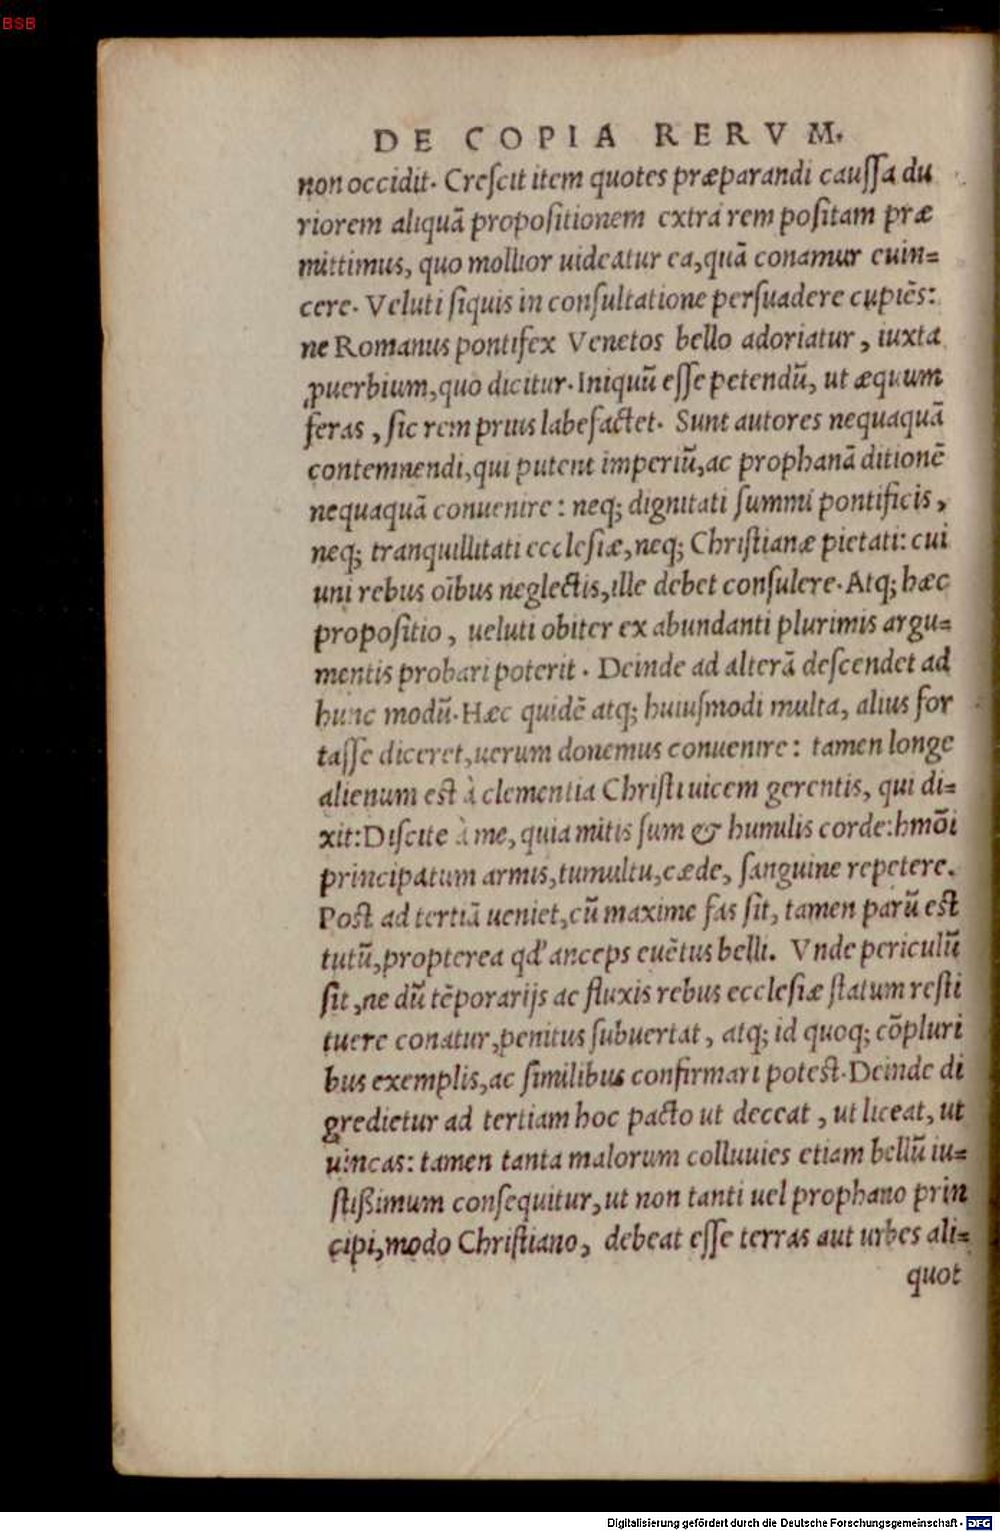 BSB
DE COPIA RERVM.
non occidit. Creſcit item quotes præparandi cauſſa du
riorem aliquã propoſitionem extrà rem poſitam præ
mittimus, quo mollior uideatur ea, quã conamur euin=
cere. Veluti ſiquis in conſultatione perſuadere cupiẽs:
ne Romanus pontifex Venetos bello adoriatur, iuxta
ꝓuerbium, quo dicitur. Iniquũ eſſe petendũ, ut æquum
feras, ſic rem prius labefactet. Sunt autores nequaquã
contemnendi, qui putent imperiũ, ac prophanã ditionẽ
nequaquã conuenire: neq; dignitati ſummi pontificis,
neq; tranquillitati eccleſiæ, neq; Chriſtianæ pietati: cui
uni rebus oı̃bus neglectis, ille debet conſulere. Atq; hæc
propoſitio, ueluti obiter ex abundanti plurimis argu=
mentis probari poterit. Deinde ad alterã deſcendet ad
hunc modũ. Hæc quidẽ atq; huiuſmodi multa, alius for
taſſe diceret, uerum donemus conuenire: tamen longe
alienum eſt à clementia Chriſti uicem gerentis, qui di=
xit: Diſcite à me, quia mitis ſum & humilis corde: hmõi
principatum armis, tumultu, cæde, ſanguine repetere.
Poſt ad tertiã ueniet, cũ maxime fas ſit, tamen parũ eſt
tutũ, propterea qd' anceps euẽtus belli. Vnde periculũ
ſit, ne dũ tẽporarijs ac fluxis rebus eccleſiæ ſtatum reſti
tuere conatur, penitus ſubuertat, atq; id quoq; cõpluri
bus exemplis, ac ſimilibus confirmari poteſt. Deinde di
gredietur ad tertiam hoc pacto ut deceat, ut liceat, ut
uincas: tamen tanta malorum colluuies etiam bellũ iu=
ſtißimum conſequitur, ut non tanti uel prophano prin
cipi, modo Chriſtiano, debeat eſſe terras aut urbes ali=
quot
Digitalisierung gefördert durch die Deutsche Forschungsgemeinschaft - DFG